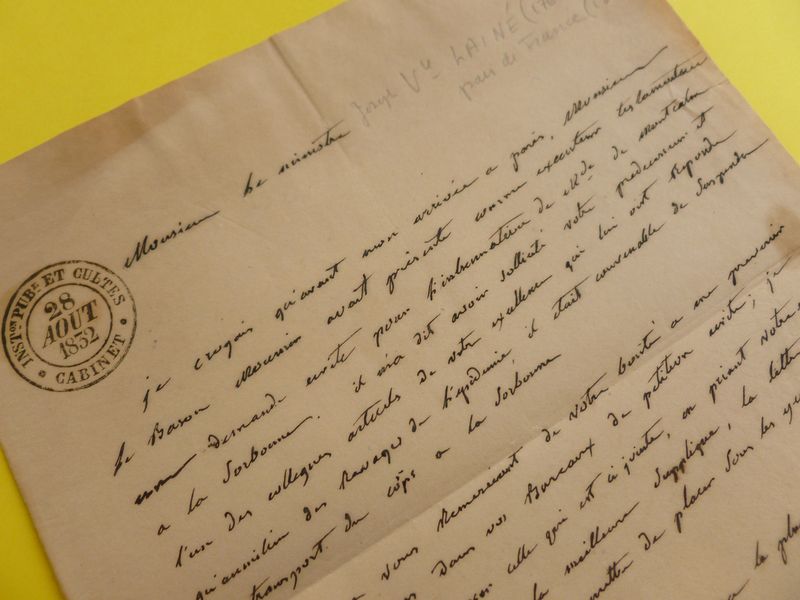 Joseph Vte LAINÉ (176
pair de France (1
Monsieur le ministre
INSTON PUBE ET CULTES
28
AOUT
1832
* CABINET *
je croyais qu'avant mon arrivée a paris, Monsieur
le Baron Mounier avait présenté comme executeur testamentaire
une demande écrite pour l'inhumation de Mde de Montcalm
a la Sorbonne. il m'a dit avoir sollicité votre prédecesseur et
l'un des collegues actuels de votre excellence qui lui ont repondu
qu'au milieu des Ravages de l'épidémie, il était convenable de Suspendre
transport du corps a la Sorbonne
vous Remerciant de votre bonté a me prevenir
dans vos Bureaux de petition écrite; je
celle qui est ci jointe, en priant votre
la meilleure Supplique, la lettre
de placer Sous les yeux
a le plus